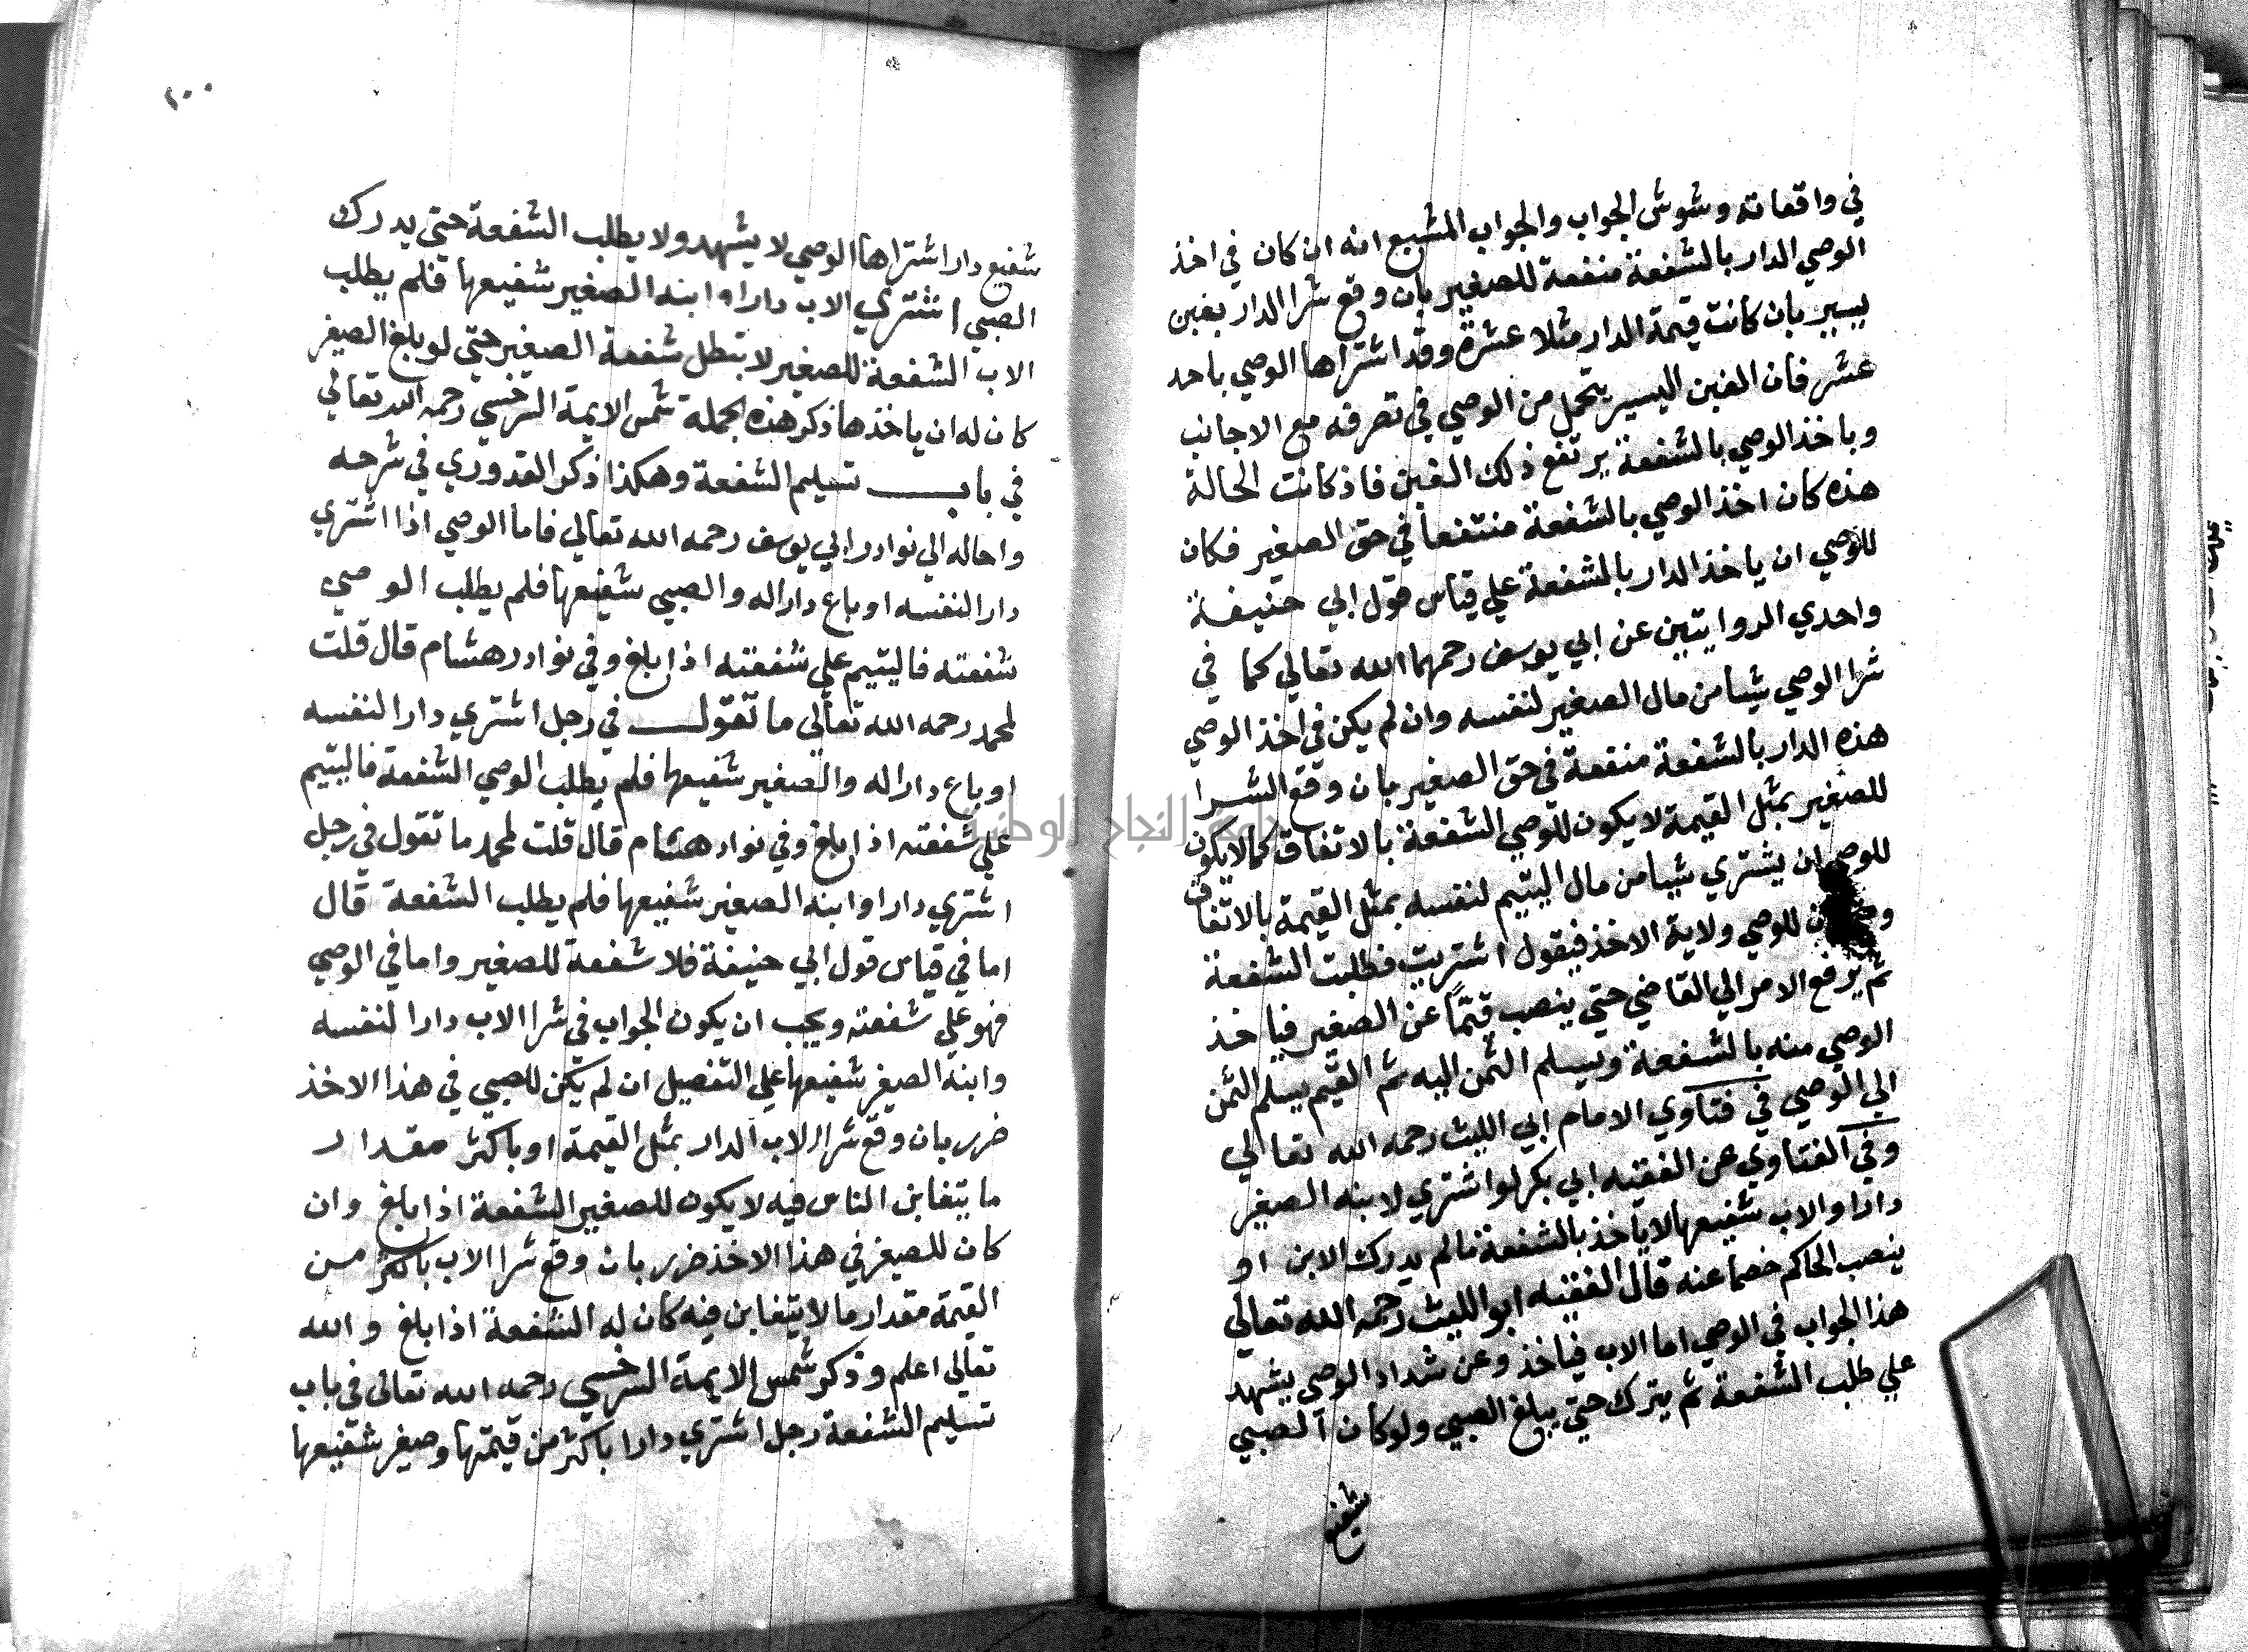 في واقعاته وشوش الجواب والجواب المشبع انه ان كان في اخذ
الوصي الدار بالشفعة منفعة للصغير بان وقع شرا الدار بغبن
يسير بان كانت قيمة الدار مثلا عشرة وقد اشتراها الوصي باحد
عشر فان الغبن اليسير يتحمل من الوصي في تصرفه مع الاجانب
وباخذ الوصي بالشفعة يرتفع ذلك الغبن فاذ كانت الحالة
هذه كان اخذ الوصي بالشفعة منتفعا في حق الصغير فكان
للوصي ان ياخذ الدار بالشفعة علي قياس قول ابي حنيفة
واحدي الروايتين عن ابي يوسف رحمهما الله تعالي كما في
شرا الوصي شيا من مال الصغير لنفسه وان لم يكن في اخذ الوصي
هذه الدار بالشفعة منفعة في حق الصغير بان وقع الشرا
للصغير بمثل القيمة لا يكون للوصي الشفعة بالاتفاق كما لا يكون
للوصي ان يشتري شيا من مال اليتيم لنفسه بمثل القيمة بالاتفاق
للوصي ولاية الاخذ فيقول اشتريت فطلبت الشفعة
ثم يرفع الامر الي القاضي حتي ينصب قيّمًا عن الصغير فياخذ
الوصي منه بالشفعة ويسلم الثمن اليه ثم القيم يسلم الثمن
الي الوصي في فتاوي الامام ابي الليث رحمه الله تعالي
وفي الفتاوي عن الفقيه ابي بكر لو اشتري لابنه الصغير
دارا والاب شفيعها لا ياخذ بالشفعة مالم يدرك الابن او
ينصب الحاكم خصما عنه قال الفقيه ابو الليث رحمه الله تعالي
هذا الجواب في الوصي اما الاب فياخذ وعن شداد الوصي يشهد
علي طلب الشفعة ثم يترك حتي يبلغ الصبي ولو كان الصبي
شفيع
٢٠٠
شفيع دارا اشتراها الوصي لا يشهد ولا يطلب الشفعة حتي يدرك
الصبي اشتري الاب دارا وابنه الصغير شفيعها فلم يطلب
الاب الشفعة للصغير لا تبطل شفعة الصغير حتي لو بلغ الصغير
كان له ان ياخذها ذكر هذه الجملة شمس الايمة السرخسي رحمه الله تعالي
في باب تسليم الشفعة وهكذا ذكر القدوري في شرحه
واحاله الي نوادر ابي يوسف رحمه الله تعالي فاما الوصي اذا اشتري
دارا لنفسه او باع دارا له والصبي شفيعها فلم يطلب الوصي
شفعته فاليتيم علي شفعته اذا بلغ وفي نوادر هشام قال قلت
لمحمد رحمه الله تعالي ما تقول في رجل اشتري دارا لنفسه
او باع دارا له والصغير شفيعها فلم يطلب الوصي الشفعة فاليتيم
علي شفعته اذا بلغ وفي نوادر هشام قال قلت لمحمد ما تقول في رجل
اشتري دارا وابنه الصغير شفيعها فلم يطلب الشفعة قال
اما في قياس قول ابي حنيفة فلا شفعة للصغير واما في الوصي
فهو علي شفعته ويجب ان يكون الجواب في شرا الاب دارا لنفسه
وابنه الصغير شفيعها علي التفصيل ان لم يكن للصبي في هذا الاخذ
ضرر بان وقع شرا الاب الدار بمثل القيمة او باكثر مقدار
ما يتغابن الناس فيه لا يكون للصغير الشفعة اذا بلغ وان
كان للصغير في هذا الاخذ ضرر بان وقع شرا الاب باكثر من
القيمة مقدار ما لا يتغابن فيه كان له الشفعة اذا بلغ والله
تعالي اعلم وذكر شمس الايمة السرخسي رحمه الله تعالي في باب
تسليم الشفعة رجل اشتري دارا باكثر من قيمتها وصغير شفيعها
جامعة النجاح الوطنية